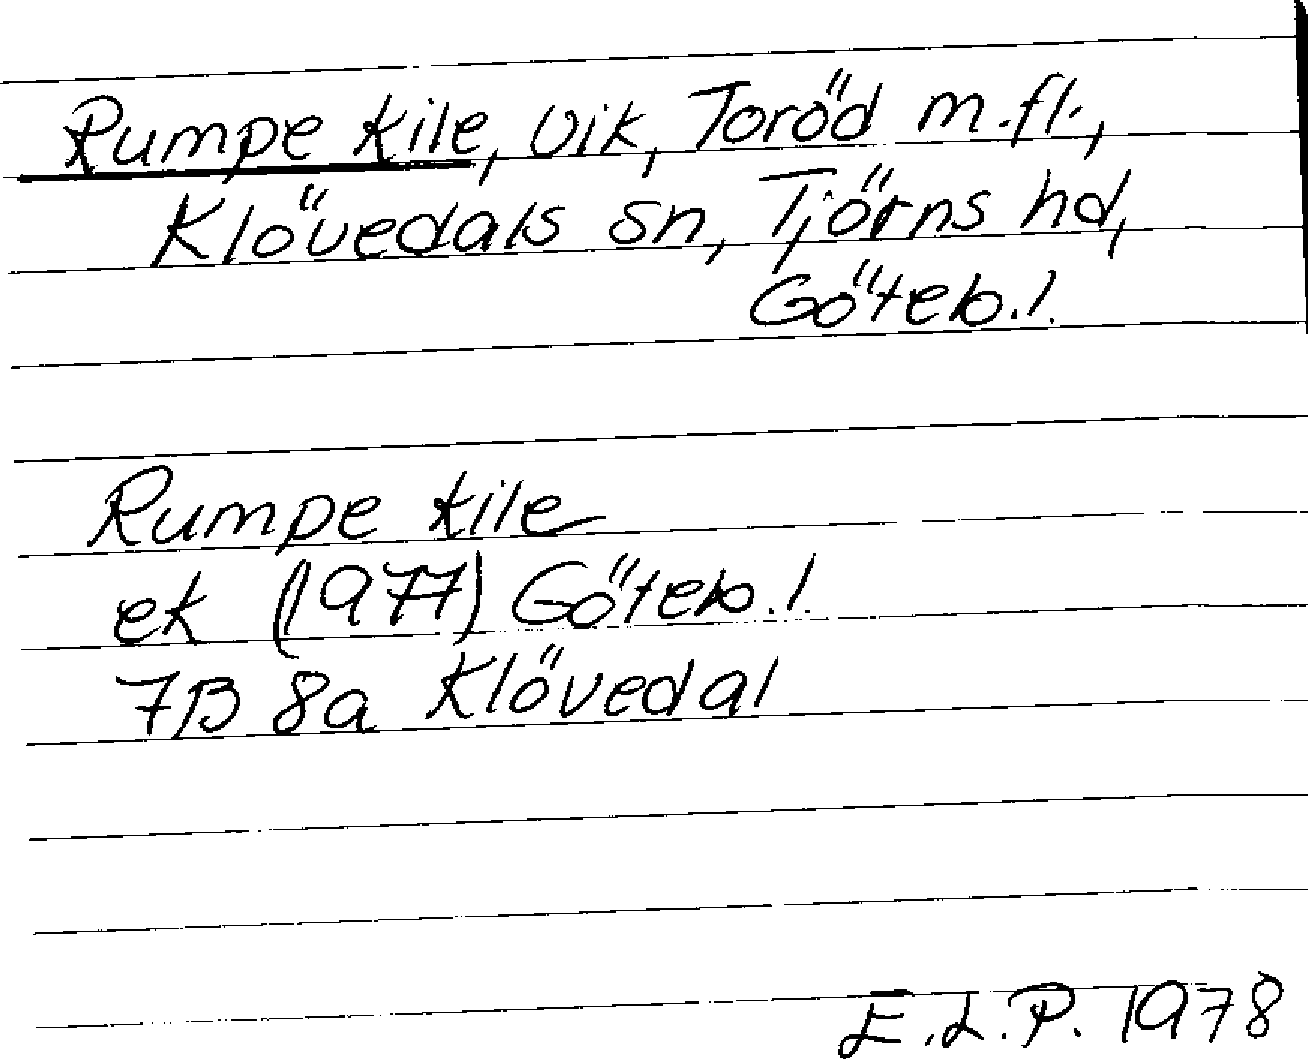 Rumpe kile, vik, Toröd m.fl.,
Klövedals sn, Tjörns hd,
Göteb.l.
Rumpe kile
ek (1977) Göteb.l.
7B 8a Klövedal
E.L.P. 1978